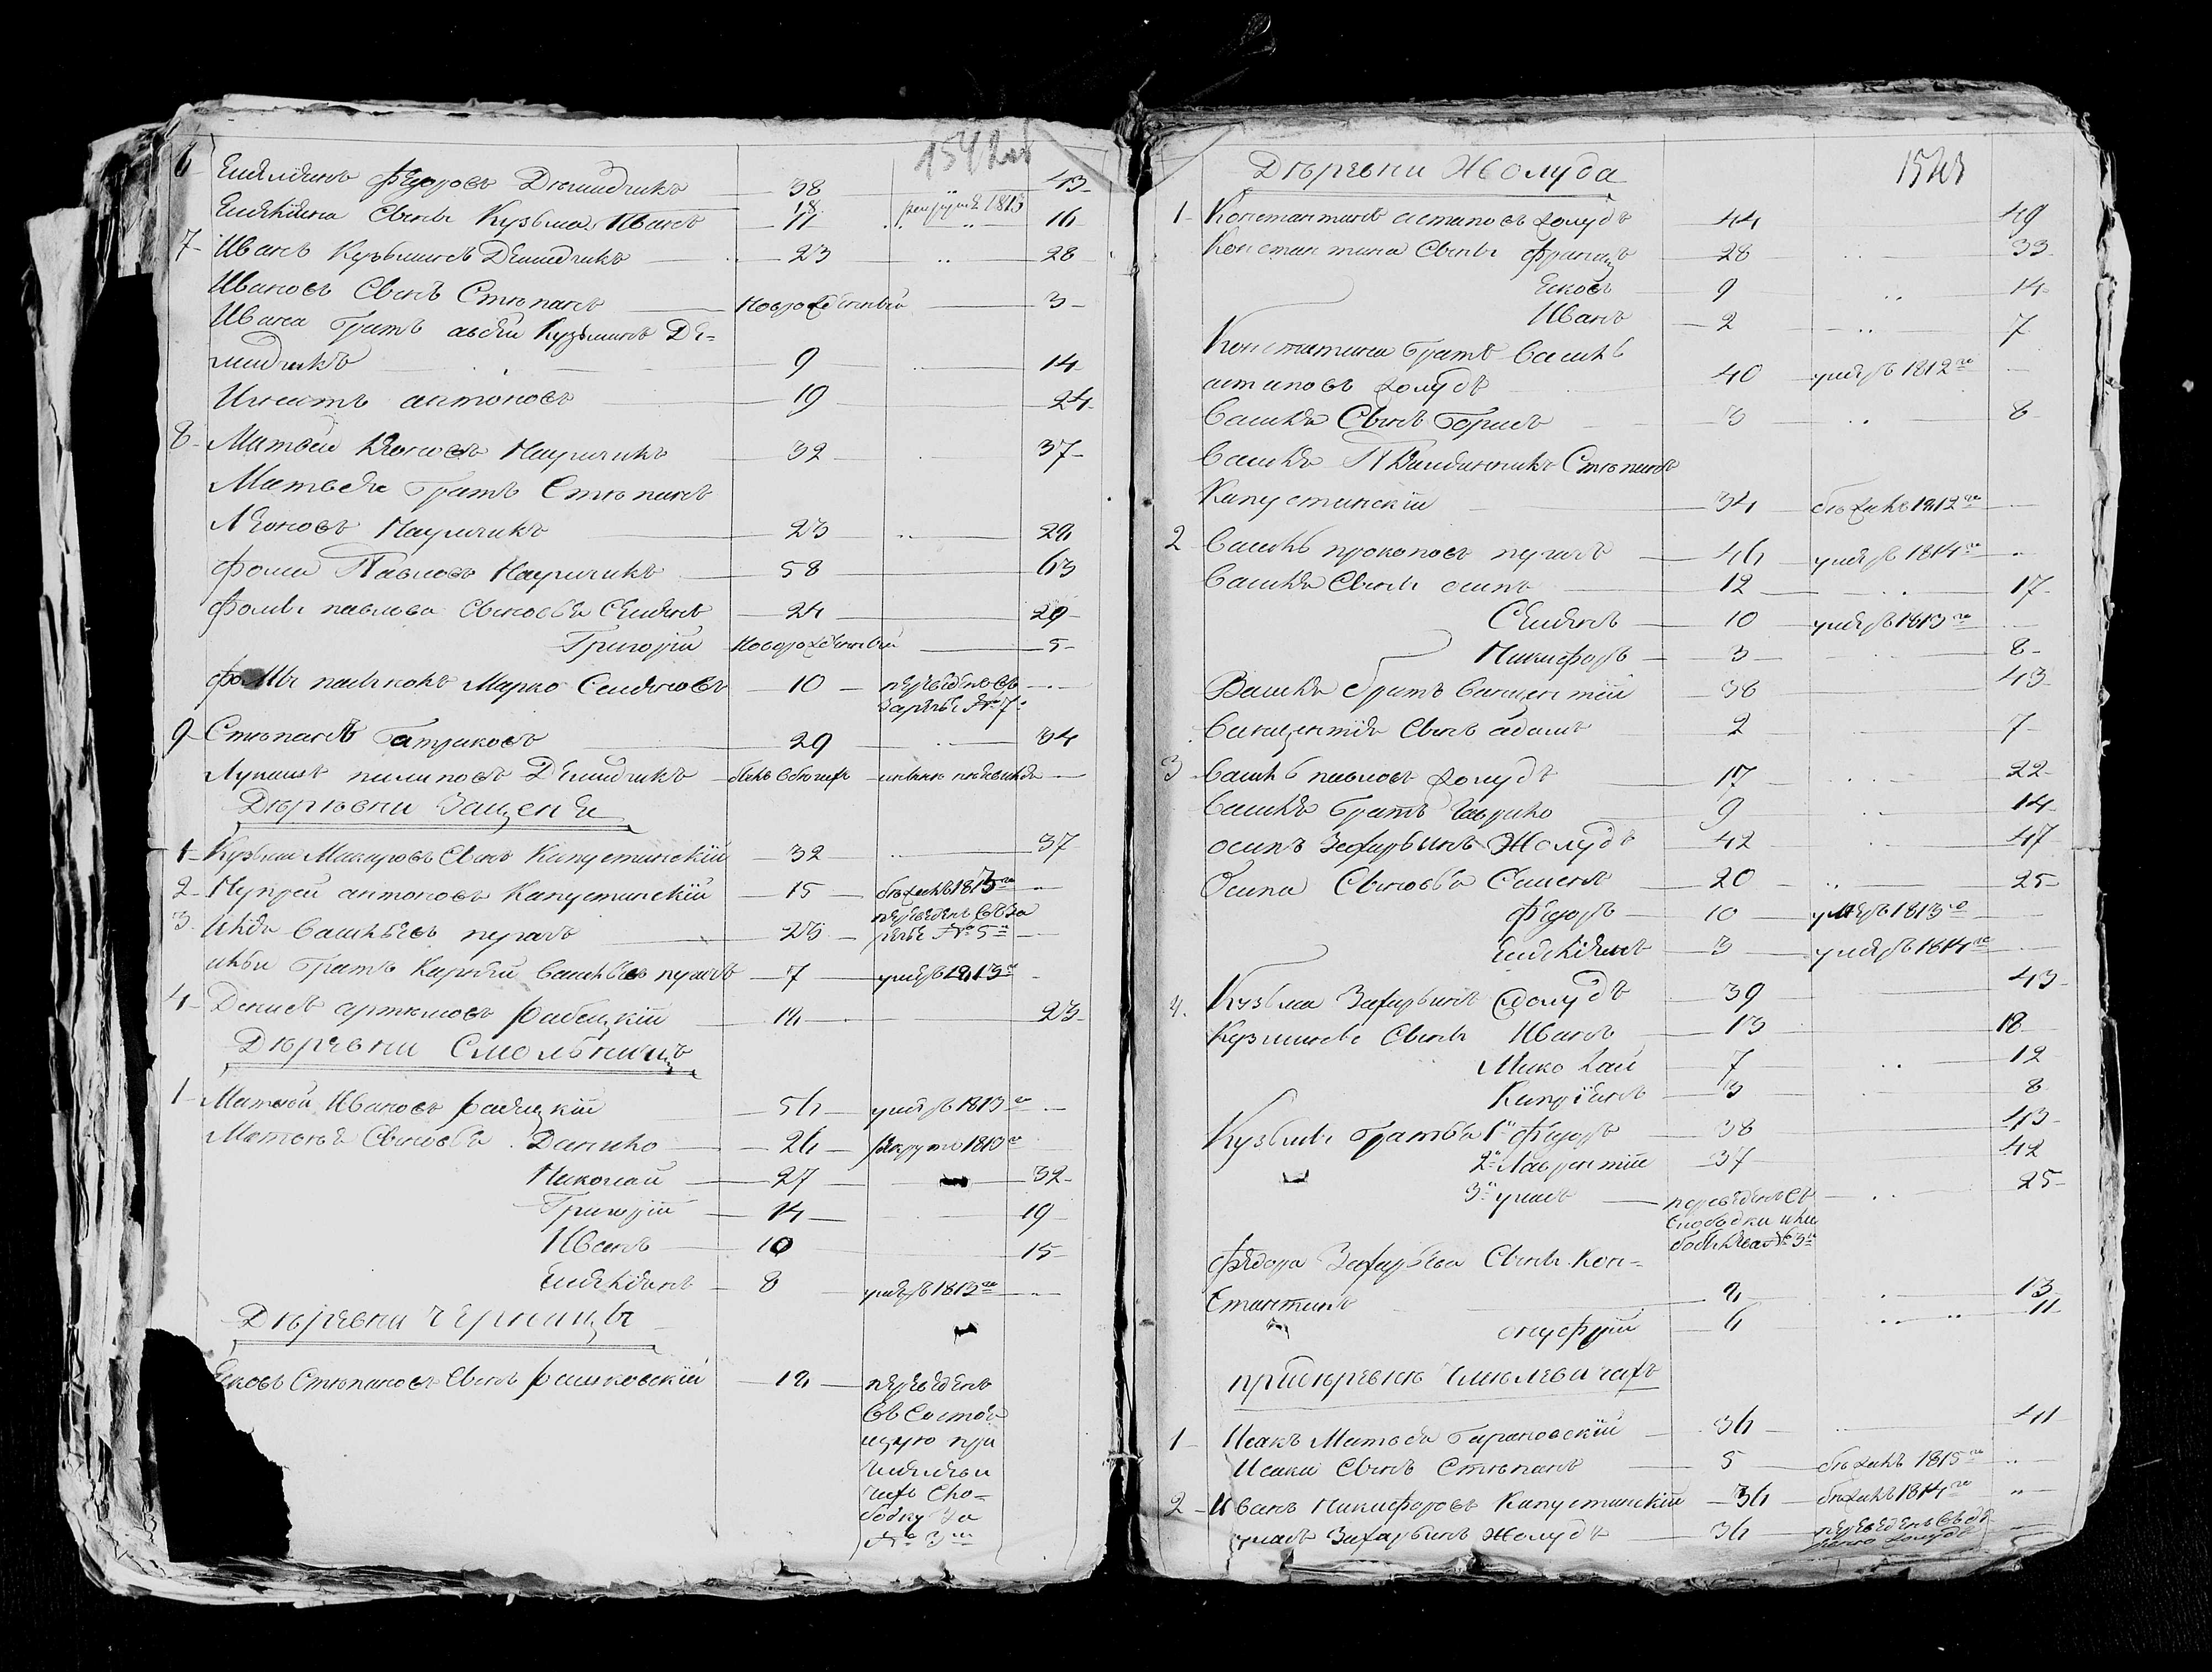 1542об
6 Емельянъ Федоровъ Демидчикъ 38 43
Емельяна Сынъ Кузьма Иванъ 18 11 рекрутъ 1813 16
7 Иванъ Кузьминъ Демидчикъ 23 28
Ивановъ Сынъ Степанъ новорожденный 3
Ивана братъ авсей Кузьминъ Де=
мидчикъ 9 14
Игнатъ антоновъ 19 24
8 Матвей Леоновъ Наумчикъ 32 37
Матвея братъ Степанъ
Леоновъ Наумчикъ 23 28
Фома Павловъ Наумчикъ 58 63
Фомы павлова Сыновья Семенъ 24 29
Григорій новорожденный 5
Фомы Марко Семеновъ 10 переведенъ
№ 7
9 Степанъ батраковъ 29 34
Лукашъ пилиповъ Демидчикъ
Деревни Защенья
1 Кузьма Макаровъ Сынъ Капустинскій 32 37
2 Купрей антоновъ Капустинскій 15 бежалъ 1815го
3 Илья Васильевъ пугачъ 23 переведенъ
№ 5й
Ильи братъ Карней Васильевъ пугачъ 7 умеръ 1813го
4 Денисъ артемовъ рабецкій 18 23
Деревни Смольницъ
1 Матвей Ивановъ рабецкій 56 умеръ 1813го
Матвея Сыновья Данило 26 рекрутъ 1813го
Николай 27 32
Григорій 14 19
Иванъ 10 15
Емельянъ 8 умеръ 1812го
Деревни Черницы
Яковъ Степановъ Сынъ рашковскій 18 переведенъ
въ Состоя
щую при
Смолеви
чахъ Сло=
бодку за
№ 3м
1543
Деревни Жолуда
1 Константинъ астаповъ жолудъ 44 49
Константина Сыны Францъ 28 33
Яковъ 9 14
Иванъ 2 7
Константина братъ Василь
астаповъ жолудъ 40 умеръ 1812го
Василя Сынъ борисъ 3 8
Василя Племянникъ Степанъ
Капустинскій 34 бежалъ 1812го
2 Василь прокоповъ пугачъ 46 умеръ 1814го
Василя Сыны осипъ 12 17
Семенъ 10 умеръ 1813го
Никифоръ 3 8
Василя братъ Викентій 38 43
Викентія Сынъ адамъ 2 7
3 Василь павловъ жолудъ 17 22
Василя братъ Гаврило 9 14
осипъ Захарьинъ Жолудъ 42 47
Осипа Сыновья Самсонъ 20 25
Федоръ 10 умеръ 1813го
Емельянъ 3 умеръ 1814го
4. Кузьма Захарьинъ жолудъ 39 43
Кузмины Сыны Иванъ 13 18
Миколай 7 12
Капріянъ 3 8
Кузьмы братья 1й Федоръ 38 43
2й Лаврентій 37 42
3й умасъ переведенъ съ 25
Слободки
№ 3й
Федора Захарьева Сыны Кон=
стантинъ 8 13
онуфрій 6 11
при деревне Смолевичахъ
1 Исакъ Матвея барановскій 36 41
Исака Сынъ Степанъ 5 бежалъ 1815го
2 Иванъ Никифоровъ Капустинскій 36 бежалъ 1814го
умасъ Захарьинъ Жолудъ 36 переведенъ въ де
ревню жолудъ